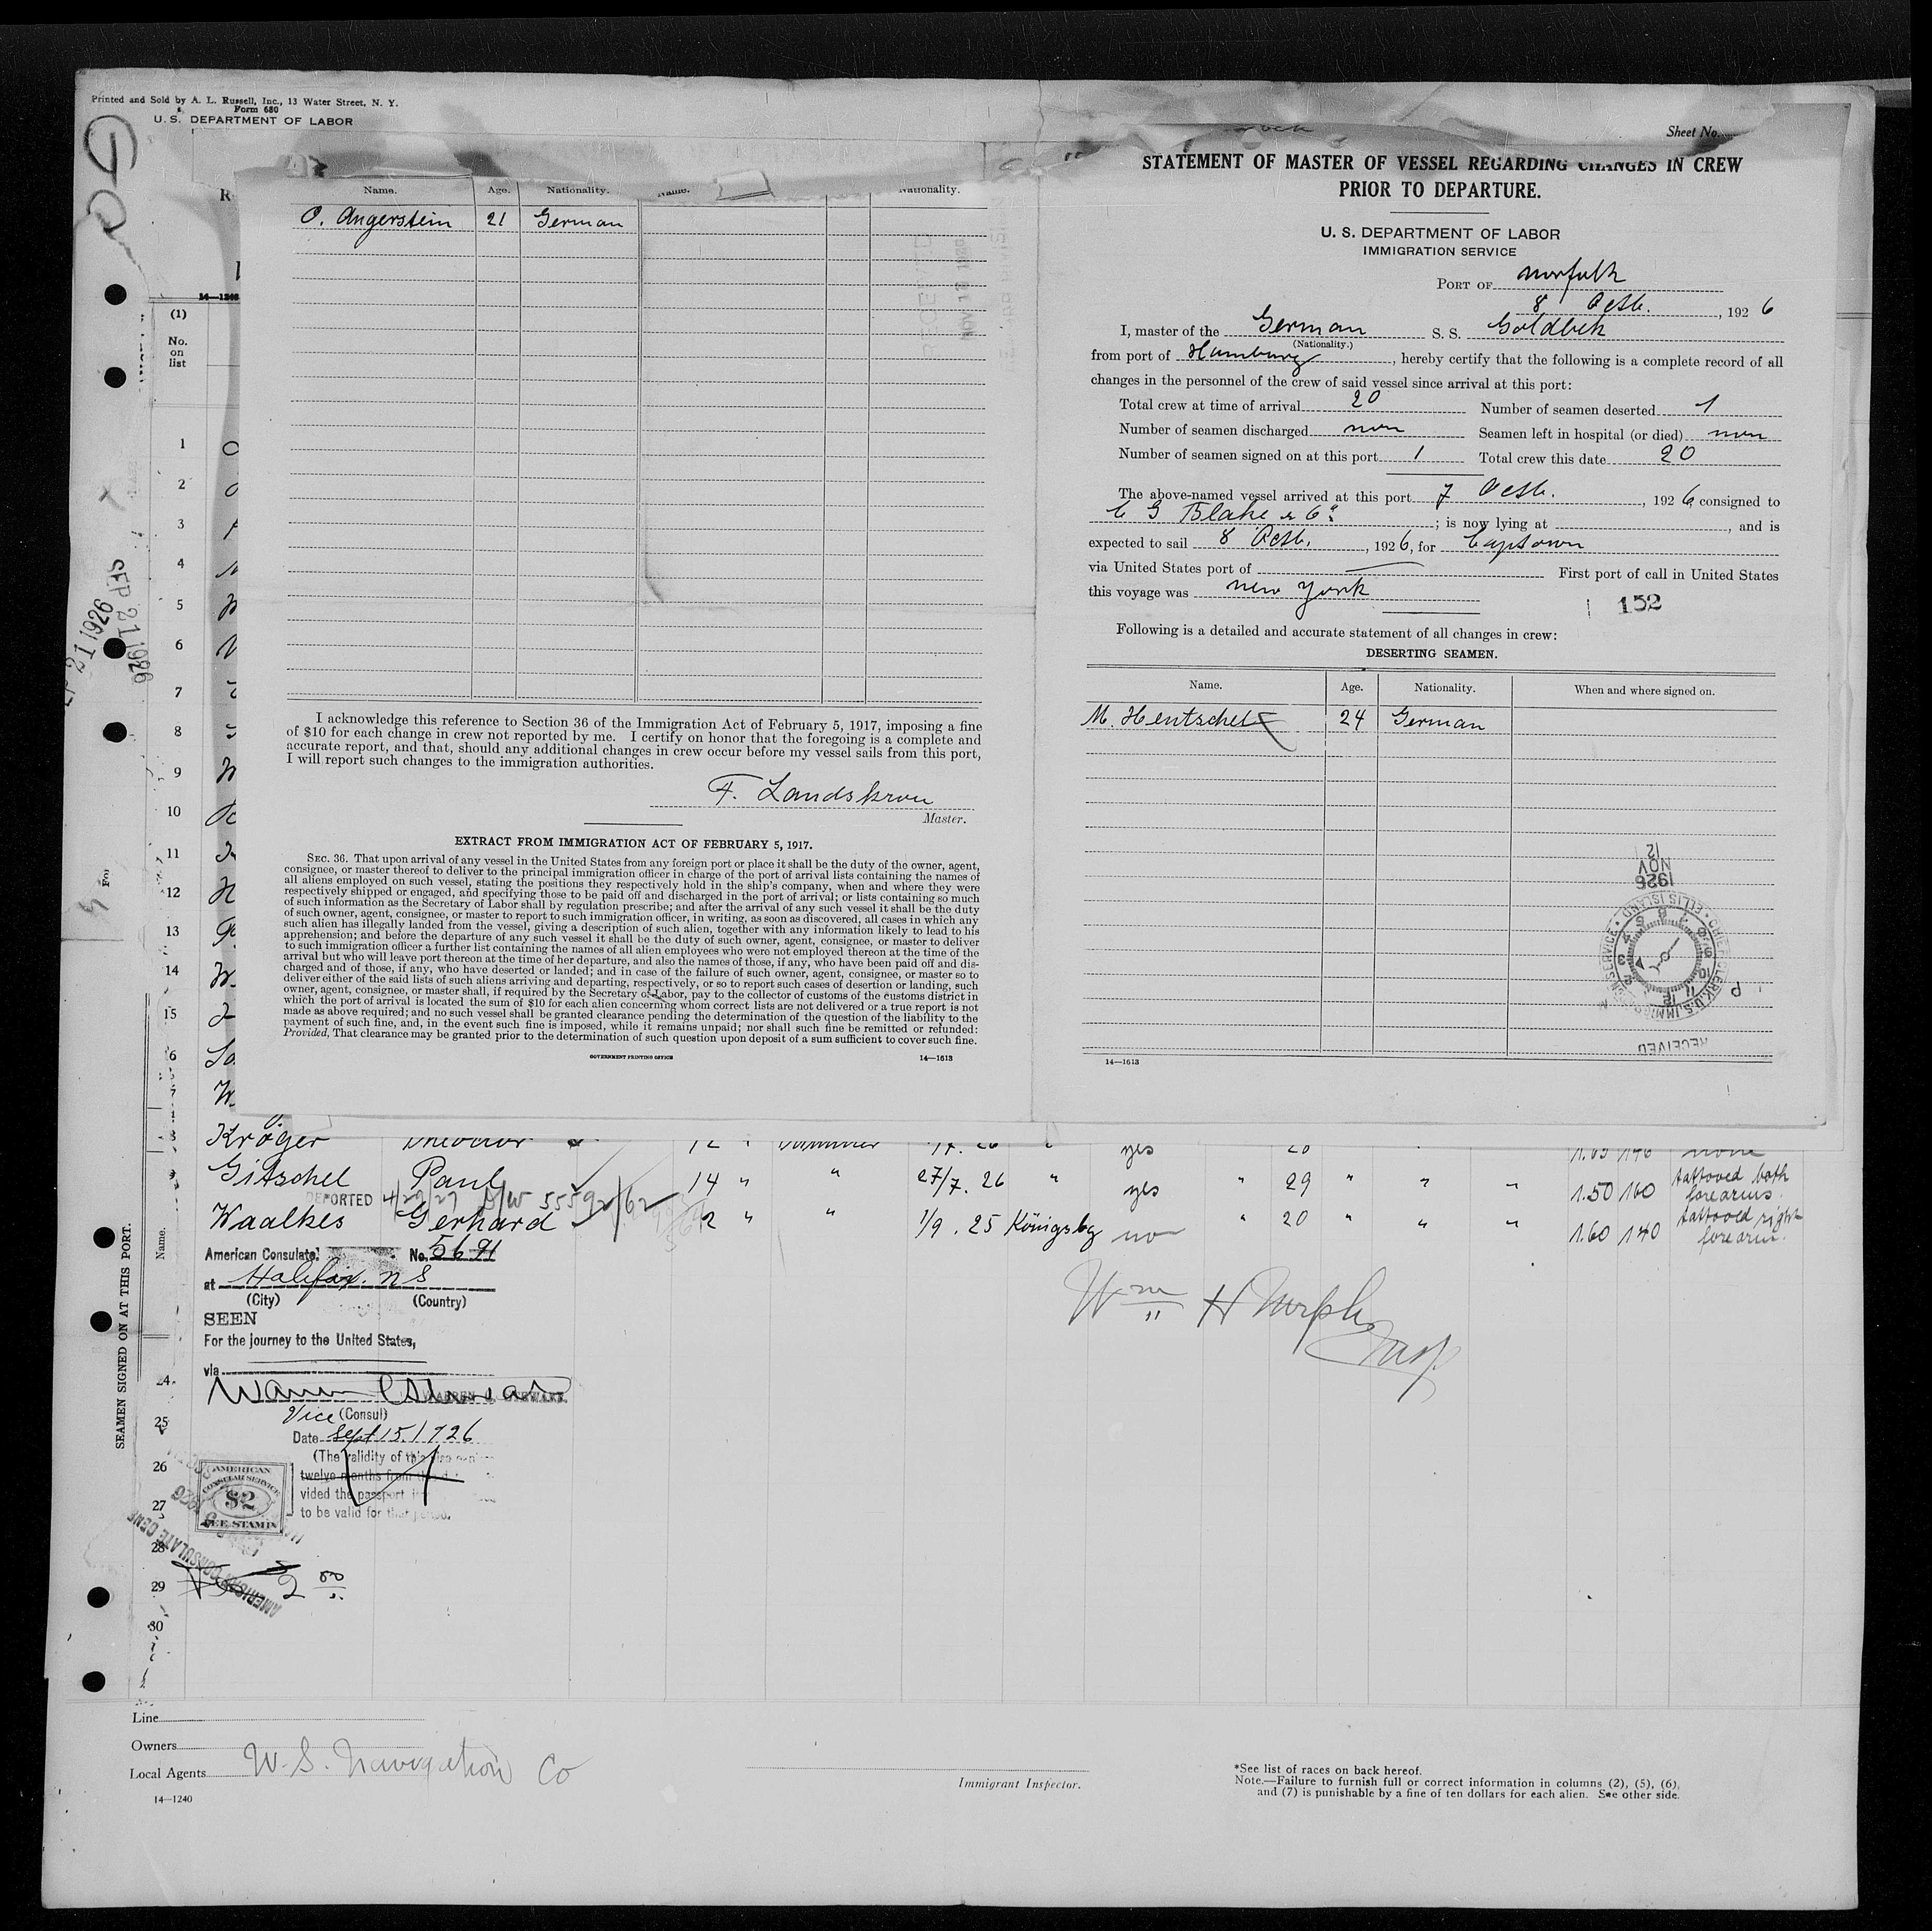 Printed and Sold by A. L. Russell, Inc., 13 Water Street, N. Y.
Form 680
U. S. DEPARTMENT OF LABOR
Sheet No.
14—1240
(1)
No. on list
1
2
3
4
5
6
7
8
9
10
11
12
13
14
15
SEP 21 1926
Name. Age. Nationality. Name. Nationality.
O. Angerstein 21 German
I acknowledge this reference to Section 36 of the Immigration Act of February 5, 1917, imposing a fine
of $10 for each change in crew not reported by me. I certify on honor that the foregoing is a complete and
accurate report, and that, should any additional changes in crew occur before my vessel sails from this port,
I will report such changes to the immigration authorities.
F. Landskron
Master.
EXTRACT FROM IMMIGRATION ACT OF FEBRUARY 5, 1917.
SEC. 36. That upon arrival of any vessel in the United States from any foreign port or place it shall be the duty of the owner, agent,
consignee, or master thereof to deliver to the principal immigration officer in charge of the port of arrival lists containing the names of
all aliens employed on such vessel, stating the positions they respectively hold in the ship's company, when and where they were
respectively shipped or engaged, and specifying those to be paid off and discharged in the port of arrival; or lists containing so much
of such information as the Secretary of Labor shall by regulation prescribe; and after the arrival of any such vessel it shall be the duty
of such owner, agent, consignee, or master to report to such immigration officer, in writing, as soon as discovered, all cases in which any
such alien has illegally landed from the vessel, giving a description of such alien, together with any information likely to lead to his
apprehension; and before the departure of any such vessel it shall be the duty of such owner, agent, consignee, or master to deliver
to such immigration officer a further list containing the names of all alien employees who were not employed thereon at the time of the
arrival but who will leave port thereon at the time of her departure, and also the names of those, if any, who have been paid off and dis-
charged and of those, if any, who have deserted or landed; and in case of the failure of such owner, agent, consignee, or master so to
deliver either of the said lists of such aliens arriving and departing, respectively, or so to report such cases of desertion or landing, such
owner, agent, consignee, or master shall, if required by the Secretary of Labor, pay to the collector of customs of the customs district in
which the port of arrival is located the sum of $10 for each alien concerning whom correct lists are not delivered or a true report is not
made as above required; and no such vessel shall be granted clearance pending the determination of the question of the liability to the
payment of such fine, and, in the event such fine is imposed, while it remains unpaid; nor shall such fine be remitted or refunded:
Provided, That clearance may be granted prior to the determination of such question upon deposit of a sum sufficient to cover such fine.
GOVERNMENT PRINTING OFFICE 14—1613
STATEMENT OF MASTER OF VESSEL REGARDING CHANGES IN CREW
PRIOR TO DEPARTURE.
U. S. DEPARTMENT OF LABOR
IMMIGRATION SERVICE
PORT OF Norfolk
8 Octb., 1926
I, master of the German S. S. Goldbek
(Nationality.)
from port of Hamburg, hereby certify that the following is a complete record of all
changes in the personnel of the crew of said vessel since arrival at this port:
Total crew at time of arrival 20 Number of seamen deserted 1
Number of seamen discharged non Seamen left in hospital (or died) non
Number of seamen signed on at this port 1 Total crew this date 20
The above-named vessel arrived at this port 7 Octb., 1926, consigned to
C G Blake & Co; is now lying at , and is
expected to sail 8 Octb., 1926, for Captown
via United States port of — First port of call in United States
this voyage was new york
152
Following is a detailed and accurate statement of all changes in crew:
DESERTING SEAMEN.
Name. Age. Nationality. When and where signed on.
M. Hentschel 24 German
12
NOV
1926
CHIEF CLERK, U.S. IMMIGRATION SERVICE • ELLIS ISLAND
RECEIVED
14—1613
Kröger
Gitschel Paul 14 " " 27/7. 26 " yes " 29 " " " 1.50 160 tattooed both forearms
DEPORTED 4/29/27 55592/62
Waalkes Gerhard 2 " " 1/9. 25 Königsbg non " 20 " " " 1.60 140 tattooed right forearm.
SEAMEN SIGNED ON AT THIS PORT.
Name.
American Consulate No. 5691
at Halifax. N S
(City) (Country)
SEEN
For the journey to the United States,
via
Vice (Consul)
Date Sept 15. 1926
(The validity of this
twelve months from
vided the passport
to be valid for that
AMERICAN
CONSULAR SERVICE
$2
FEE STAMP
AMERICAN CONSULATE GENE
Wm H Murphy
24
25
26
27
28
29
30
Line
Owners
Local Agents W. S. Navigation Co
14—1240
Immigrant Inspector.
*See list of races on back hereof.
Note.—Failure to furnish full or correct information in columns (2), (5), (6),
and (7) is punishable by a fine of ten dollars for each alien. See other side.